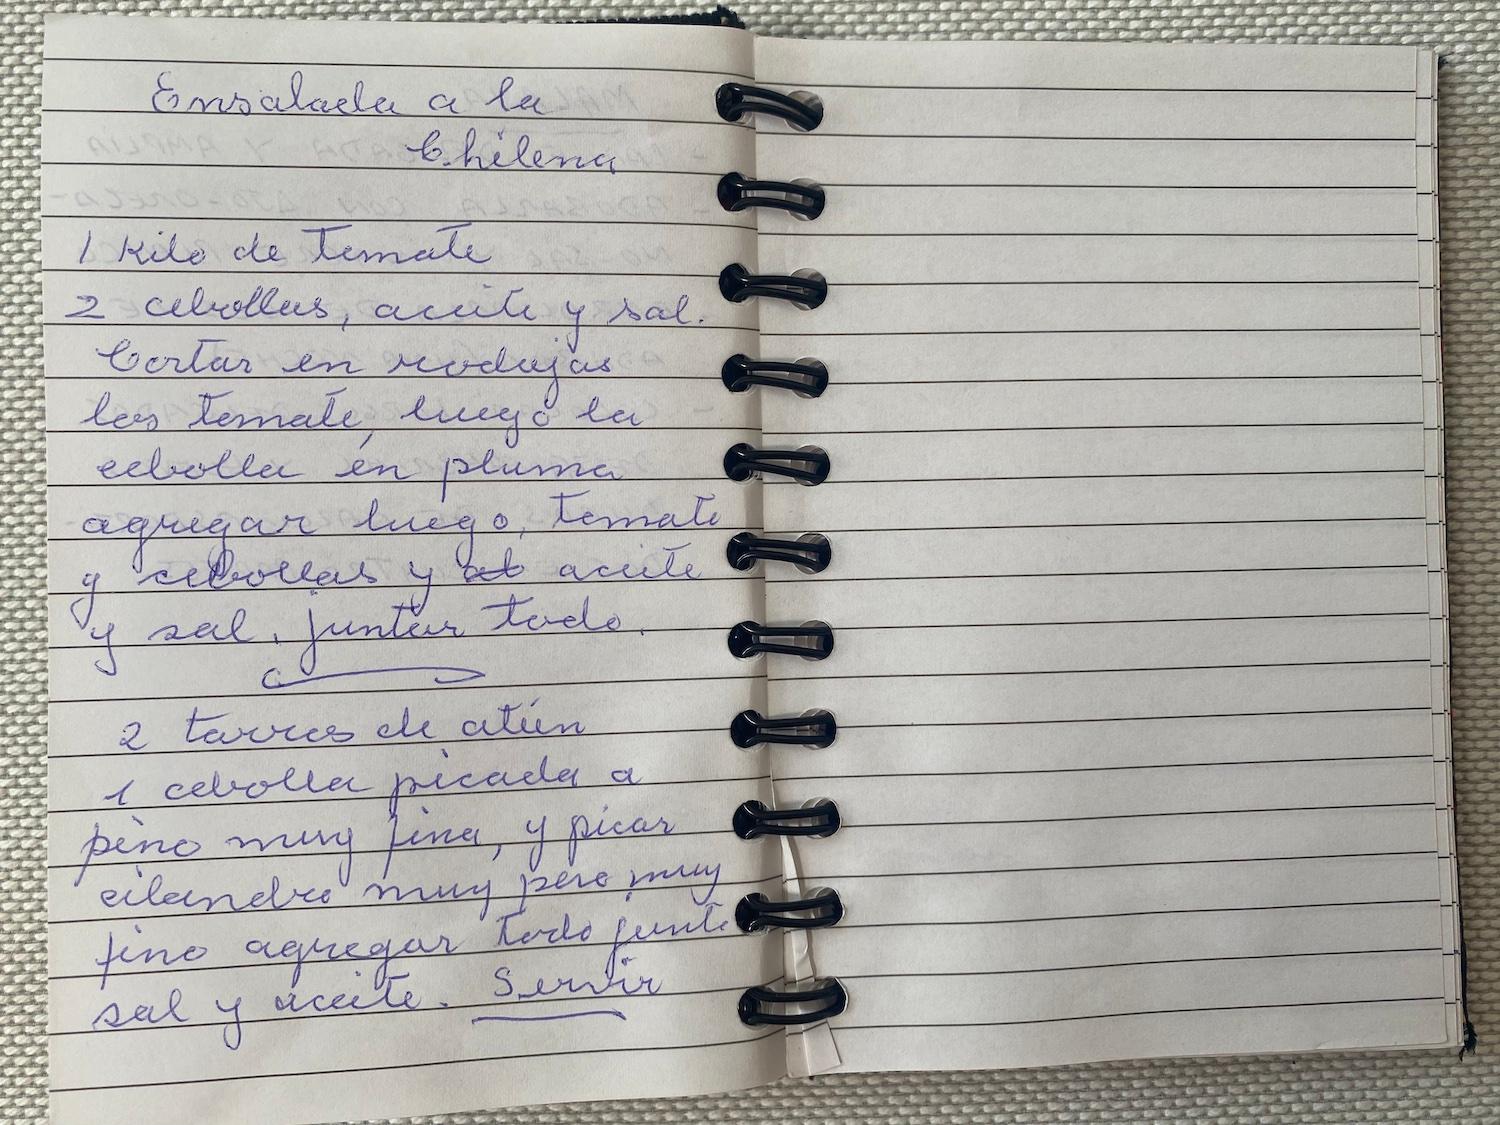 Ensalada a la
Chilena
1 Kilo de Tomate
2 cebollas, aceite y sal.
Cortar en rodajas
los tomate, luego la
cebolla en pluma
agregar luego, tomate
y cebollas y aceite
y sal, juntar todo.
2 tarros de atún
1 cebolla picada a
pino muy fina, y picar
cilandro muy pero muy
fino agregar todo junto
sal y aceite. Servir